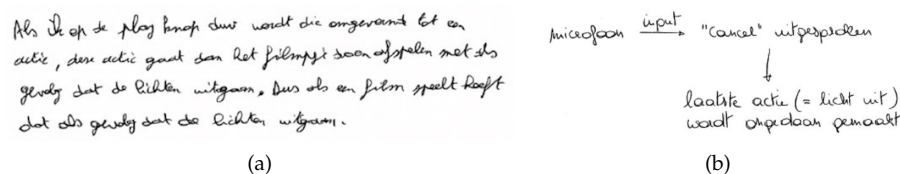 Als ik op de play knop duw wordt die omgevormd tot een
actie, deze actie gaat dan het filmpje doen afspelen met als
gevolg dat de lichten uitgaan. Dus als een film speelt heeft
dat als gevolg dat de lichten uitgaan.
(a)
microfoon input → "cancel" uitgesproken
↓
laatste actie (= licht uit)
wordt ongedaan gemaakt
(b)